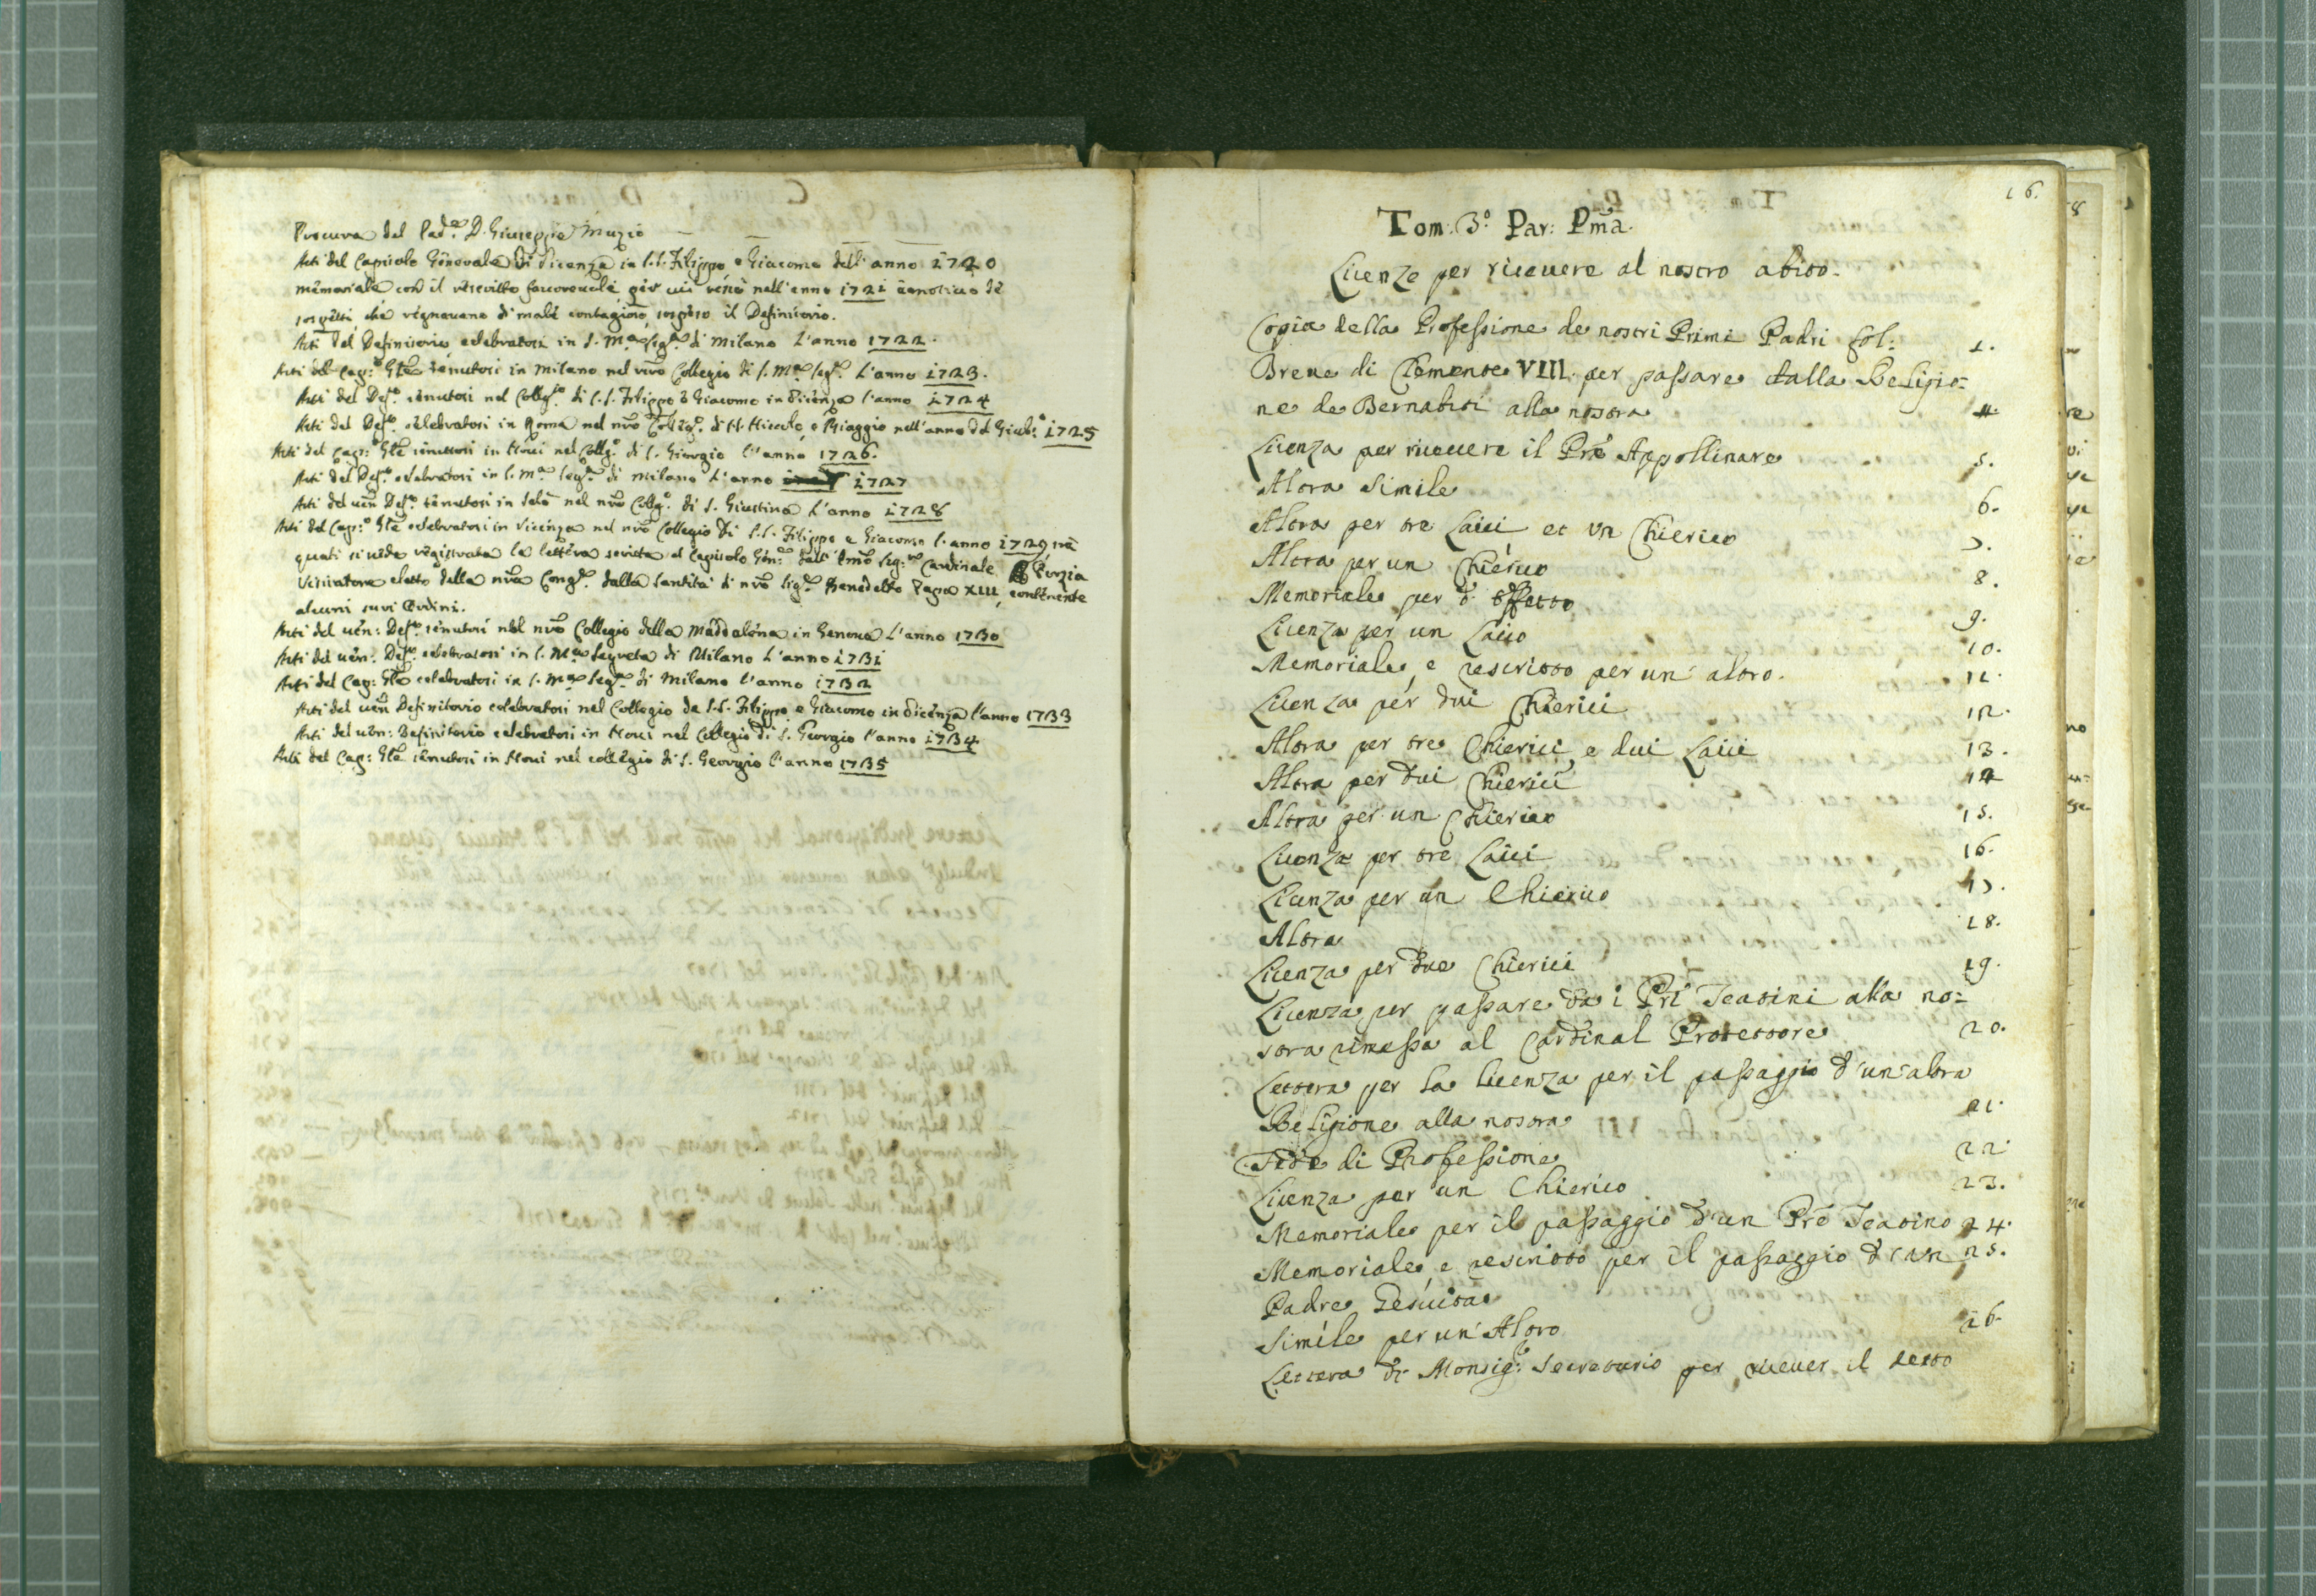 Procura del Pad.e D. Giuseppe Muzio
Atti del Capitolo Generale di Vicenza in S.S. Filippo e Giacomo dell' anno 1720
memoriale con il rescritto favorevole per cui restò nell'anno 1721 à motivo de
sospetti che regnavano di male contagioso, sospeso il Definitorio.
Atti del Definitorio celebratosi in S. M.a Seg.ta di Milano l'anno 1722.
Atti del Cap.o Gñle tenutosi in Milano nel nrõ Collegio di S. M.a Seg.ta l'anno 1723.
Atti del Def.o tenutosi nel Colleg.o di S.S. Filippo e Giacomo in Vicenza l'anno 1724
Atti del Def.o celebratosi in Roma nel nrõ Colleg.o di SS. Nicolò, e Biaggio nell'anno del Giub.o 1725
Atti del Cap.o Gñle tenutosi in Novi nel Collg.o di S. Giorgio l'anno 1726.
Atti del Def.o celebratosi in S. M.a Seg.ta di Milano l'anno 1727
Atti del ven Def.o tenutosi in Salò nel nrõ Collg.o di S. Giustina l'anno 1728
Atti del Cap.o Gñle celebratosi in Vicenza nel nrõ Collegio di S.S. Filippo e Giacomo l'anno 1729 trà
quali si vede registrata la lettera scritta al Capitolo Gen.le dall' Emo Sig.re Cardinale Porzia
Visitatore eletto della nrã Cong.e dalla Santità di nrõ Sig.re Benedetto Papa XIII, contenente
alcuni suoi Ordini.
Atti del ven: Def.o tenutosi nel nrõ Collegio della Maddalena in Genova l'anno 1730
Atti del ven: Def.o celebratosi in S. M.a Segreta di Milano l'anno 1731
Atti del Cap: Gñle celebratosi in S. M.a Seg.ta di Milano l'anno 1732
Atti del ven Definitorio celebratosi nel Collegio de S.S. Filippo e Giacomo in Vicenza l'anno 1733
Atti del ven: Definitorio celebratosi in Novi nel Collegio di S. Georgio l'anno 1734
Atti del Cap: Gñle tenutosi in Novi nel collegio di S. Georgio l'anno 1735
16.
Tom: 3.o Par: Pma.
Licenze per ricevere al nostro abito.
Copia della Professione de nostri Primi Padri fol: 1.
Breve di Clemente VIII. per passare dalla Religio=
ne de Bernabiti alla nostra 4.
Licenza per ricevere il Prẽ Appollinare 5.
Altra simile 6.
Altra per tre Laici et un Chierico 7.
Altra per un Chierico 8.
Memoriale per d. effetto
Licenza per un Laico 9.
Memoriale, e rescritto per un' altro. 10.
Licenza per dui Chierici 11.
Altra per tre Chierici, e dui Laici 12.
Altra per dui Chierici 13.
Altra per un Chierico 14
Licenza per tre Laici 15.
Licenza per un Chierico 16.
Altra 17.
Licenza per due Chierici 18.
Licenza per passare da i Pri Teatini alla no= 19.
stra rimessa al Cardinal Protettore 20.
Lettera per la licenza per il passaggio d'un'altra
Religione alla nostra 21.
Fede di Professione 22
Licenza per un Chierico 23.
Memoriale per il passaggio d'un Prẽ Teatino 24.
Memoriale, e rescritto per il passaggio d'un 25.
Padre Gesuita
Simile per un'Altro 26.
Lettera di Monsig.e Secretario per ricever il detto